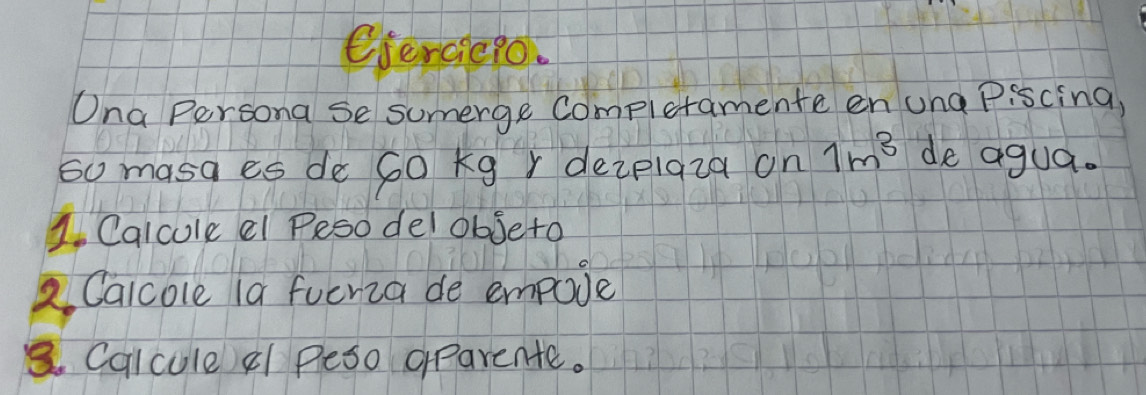 Ejercicio.
Una Persona se sumerge Completamente en una Piscina,
su masa es de 60 kg y dezplaza un 1m³ de agua.
1. Calcule el Peso del objeto
2. Calcule la fuerza de empuje
3. Calcule el Peso aparente.